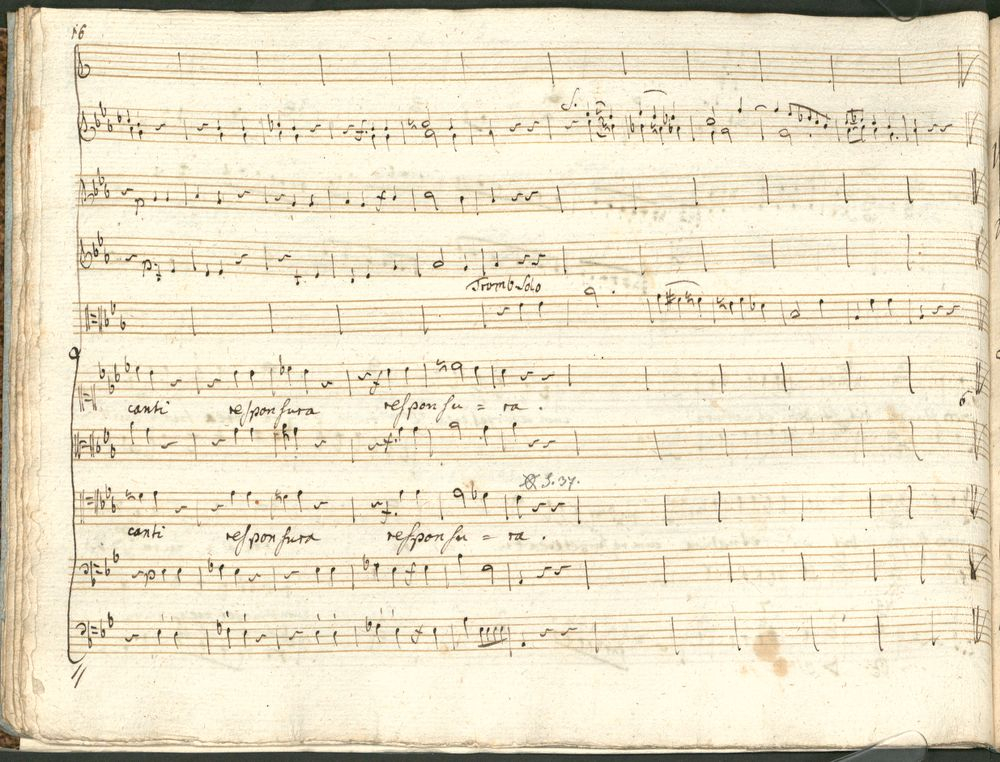 16
S.
p
f
p
f
Tromb Solo
f
canti responsura responsu = ra .
f
S. 37.
f
canti responsura responsu = ra .
p
f
f